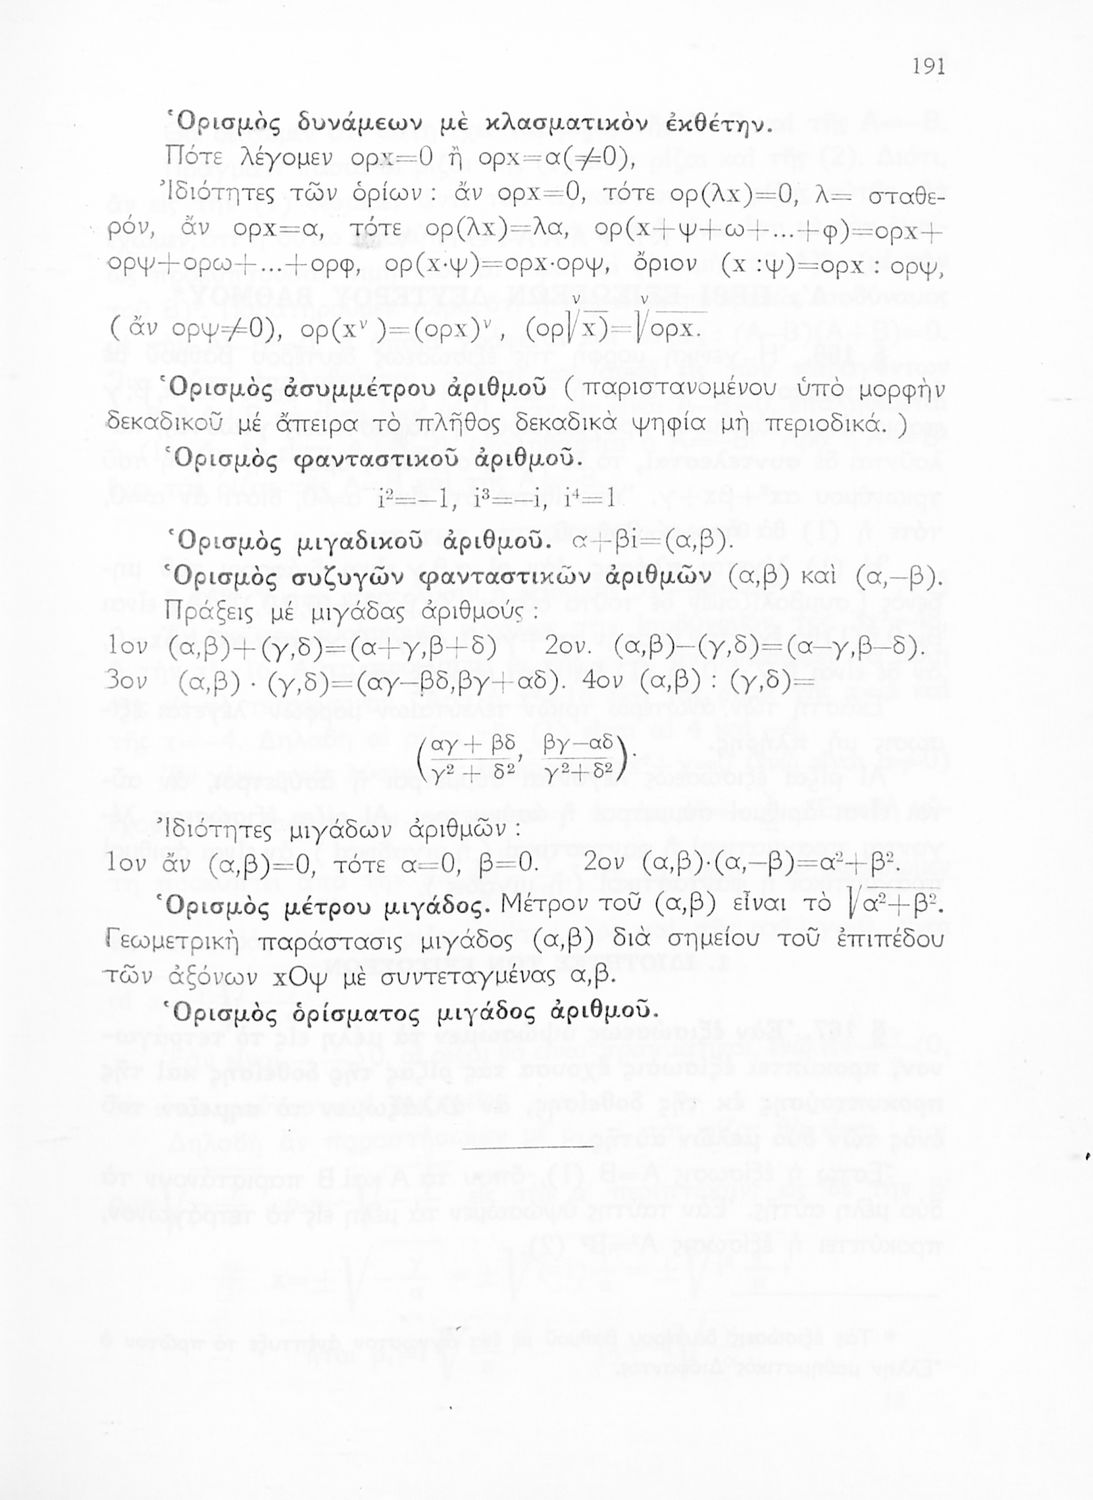 191
Ὁρισμὸς δυνάμεων μὲ κλασματικὸν ἐκθέτην.
Πότε λέγομεν ορx=0 ἢ ορx=α(≠0),
Ἰδιότητες τῶν ὁρίων : ἄν ορx=0, τότε ορ(λx)=0, λ= σταθε-
ρόν, ἄν ορx=α, τότε ορ(λx)=λα, ορ(x+ψ+ω+...+φ)=ορx+
ορψ+ορω+...+ορφ, ορ(x·ψ)=ορx·ορψ, ὅριον (x :ψ)=ορx : ορψ,
( ἄν ορψ≠0), ορ(xᵛ )=(ορx)ᵛ , (ορᵛ√x)=ᵛ√ορx.
Ὁρισμὸς ἀσυμμέτρου ἀριθμοῦ ( παριστανομένου ὑπὸ μορφὴν
δεκαδικοῦ μέ ἄπειρα τὸ πλῆθος δεκαδικὰ ψηφία μὴ περιοδικά. )
Ὁρισμὸς φανταστικοῦ ἀριθμοῦ.
i²=—1, i³=—i, i⁴=1
Ὁρισμὸς μιγαδικοῦ ἀριθμοῦ. α+βi=(α,β).
Ὁρισμὸς συζυγῶν φανταστικῶν ἀριθμῶν (α,β) καὶ (α,—β).
Πράξεις μέ μιγάδας ἀριθμούς :
1ον (α,β)+(γ,δ)=(α+γ,β+δ) 2ον. (α,β)—(γ,δ)=(α—γ,β—δ).
3ον (α,β) · (γ,δ)=(αγ—βδ,βγ+αδ). 4ον (α,β) : (γ,δ)=
(αγ+ βδ/γ² + δ², βγ—αδ/γ²+δ²).
Ἰδιότητες μιγάδων ἀριθμῶν :
1ον ἄν (α,β)=0, τότε α=0, β=0. 2ον (α,β)·(α,—β)=α²+β².
Ὁρισμὸς μέτρου μιγάδος. Μέτρον τοῦ (α,β) εἶναι τὸ √α²+β².
Γεωμετρικὴ παράστασις μιγάδος (α,β) διὰ σημείου τοῦ ἐπιπέδου
τῶν ἀξόνων xOψ μὲ συντεταγμένας α,β.
Ὁρισμὸς ὁρίσματος μιγάδος ἀριθμοῦ.